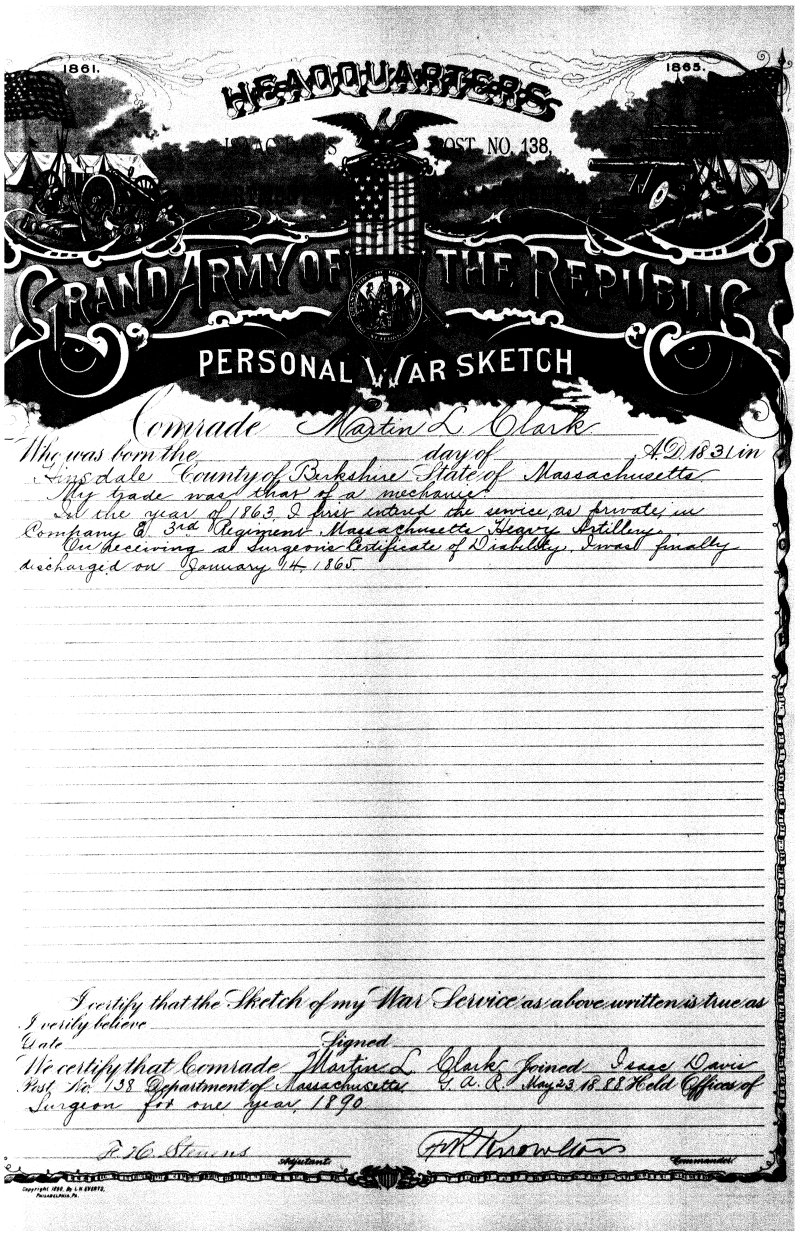 1861.
1865.
HEADQUARTERS
POST NO. 138,
GRAND ARMY OF THE REPUBLIC
PERSONAL WAR SKETCH
Comrade Martin L Clark
Who was born the day of A.D. 1831 in
Hinsdale County of Berkshire State of Massachusetts
My trade was that of a mechanic.
In the year of 1863, I first intered the service, as private, in
Company E, 3rd Regiment Massachusetts Heavy Artillery.
On receiving a Surgeons Certificate of Disability, I was finally
discharged on January 14, 1865.
I certify that the Sketch of my War Service as above written is true as
I verily believe
Date Signed
We certify that Comrade Martin L Clark Joined Isaac Davis
Post No. 138 Department of Massachusetts, G. A. R. May 23 1888 Held Offices of
Surgeon for one year, 1890
F. H. Stevens Adjutant. Knowlton Commander
Copyright 1890, By L.H. EVERTS,
PHILADELPHIA, PA.